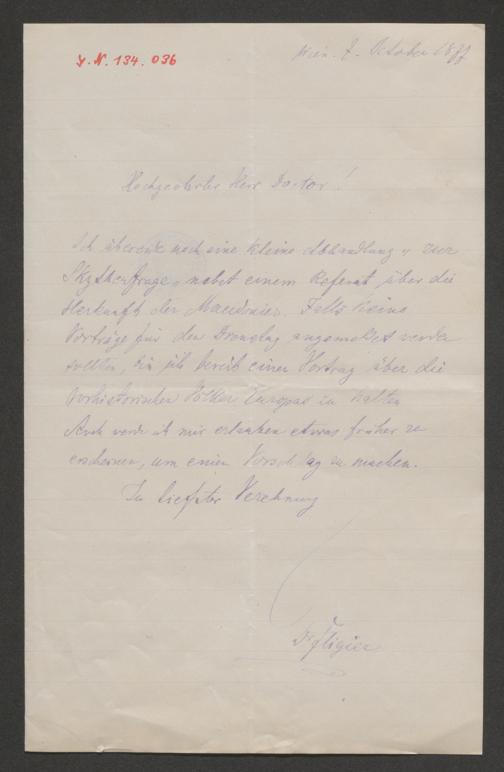 J.N. 134.036
Wien. 7. October 1877
Hochgeehrter Herr Doctor!
Ich übersende noch eine kleine Abhandlung „ zur
Skythenfrage „ nebst einem Referat über die
Herkunft der Macedonier. Falls keine
Vorträge für den Dienstag angemeldet werden
sollten, bin ich bereit einen Vortrag über die
prähistorischen Völker Europas zu halten
Auch werde ich mir erlauben etwas früher zu
erscheinen, um einen Vorschlag zu machen.
In tiefster Verehrung
Dr Fligier